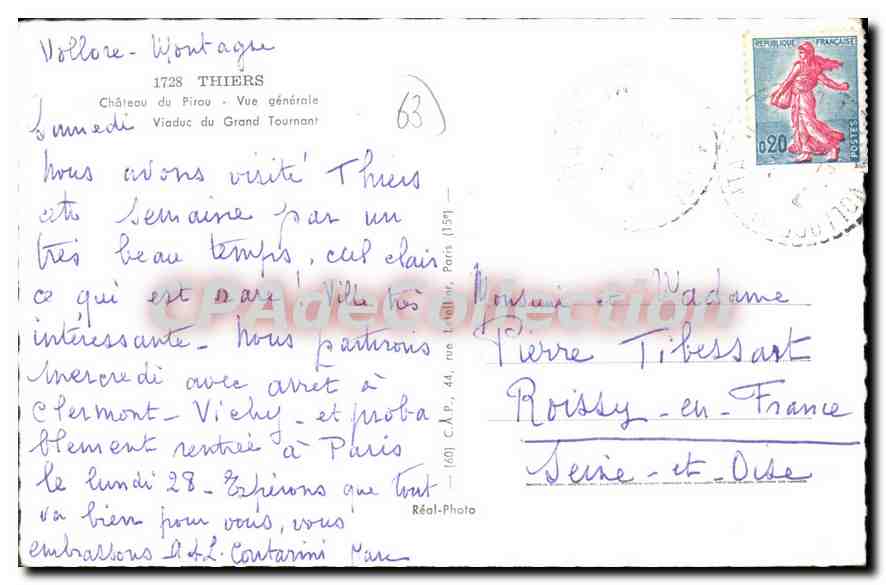 Vollore-Montagne
1728 THIERS
Château du Pirou - Vue générale
Viaduc du Grand Tournant
63
Samedi
Nous avons visité Thiers
cette semaine par un
très beau temps, ciel clair
ce qui est rare! Ville très
intéressante - Nous partirons
Mercredi avec arrêt à
Clermont - Vichy - et proba
blement rentrée à Paris
le lundi 28 - Espérons que tout
va bien pour vous, vous
embrassons A & L. Contarini
(60) C.A.P., 44, rue Letellier, Paris (15e)
Réal-Photo
REPUBLIQUE FRANÇAISE
0,20
POSTES
Monsieur et Madame
Pierre Tibessart
Roissy-en-France
Seine-et-Oise
CPAdeCollection